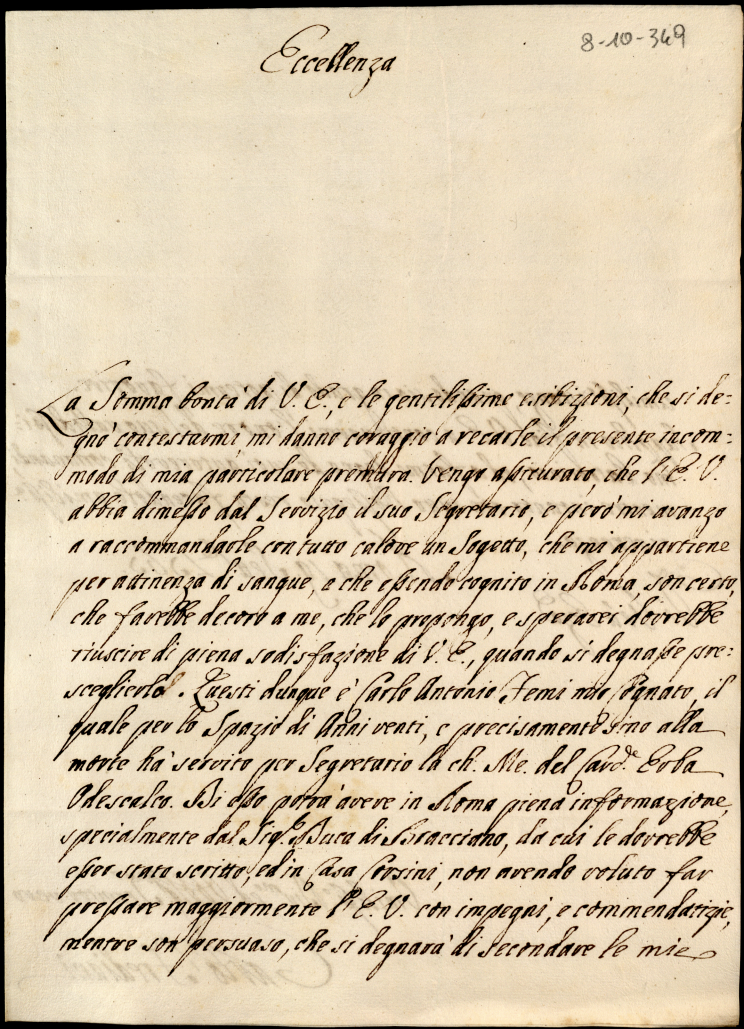 8-10-349
Eccellenza
La Somma bontà di V. E., e le gentilissime esibizioni, che si de=
gnò contestarmi, mi danno coraggio a recarle il presente incom=
modo di mia particolare premura. Vengo assicurato, che l'E. V.
abbia dimesso dal Servizio il suo Segretario, e però mi avanzo
a raccommandarle con tutto calore un Sogetto, che mi appartiene
per attinenza di sangue, e che essendo cognito in Roma, son certo,
che farebbe decoro a me, che lo propongo, e sperarei dovrebbe
riuscire di piena sodisfazione di V. E., quando si degnasse pre=
sceglierlo. Questi dunque è Carlo Antonio Temi mio Cognato, il
quale per lo Spazio di Anni venti, e precisamente sino alla
morte hà servito per Segretario la ch. Me. del Card.e Erba
Odescalco. Di esso potrà avere in Roma piena informazione,
specialmente dal Sig.r Duca di Bracciano, da cui le dovrebbe
esser stato scritto, ed in Casa Corsini, non avendo voluto far
pressare maggiormente l'E. V. con impegni, e commendatizie,
mentre son persuaso, che si degnarà di secondare le mie